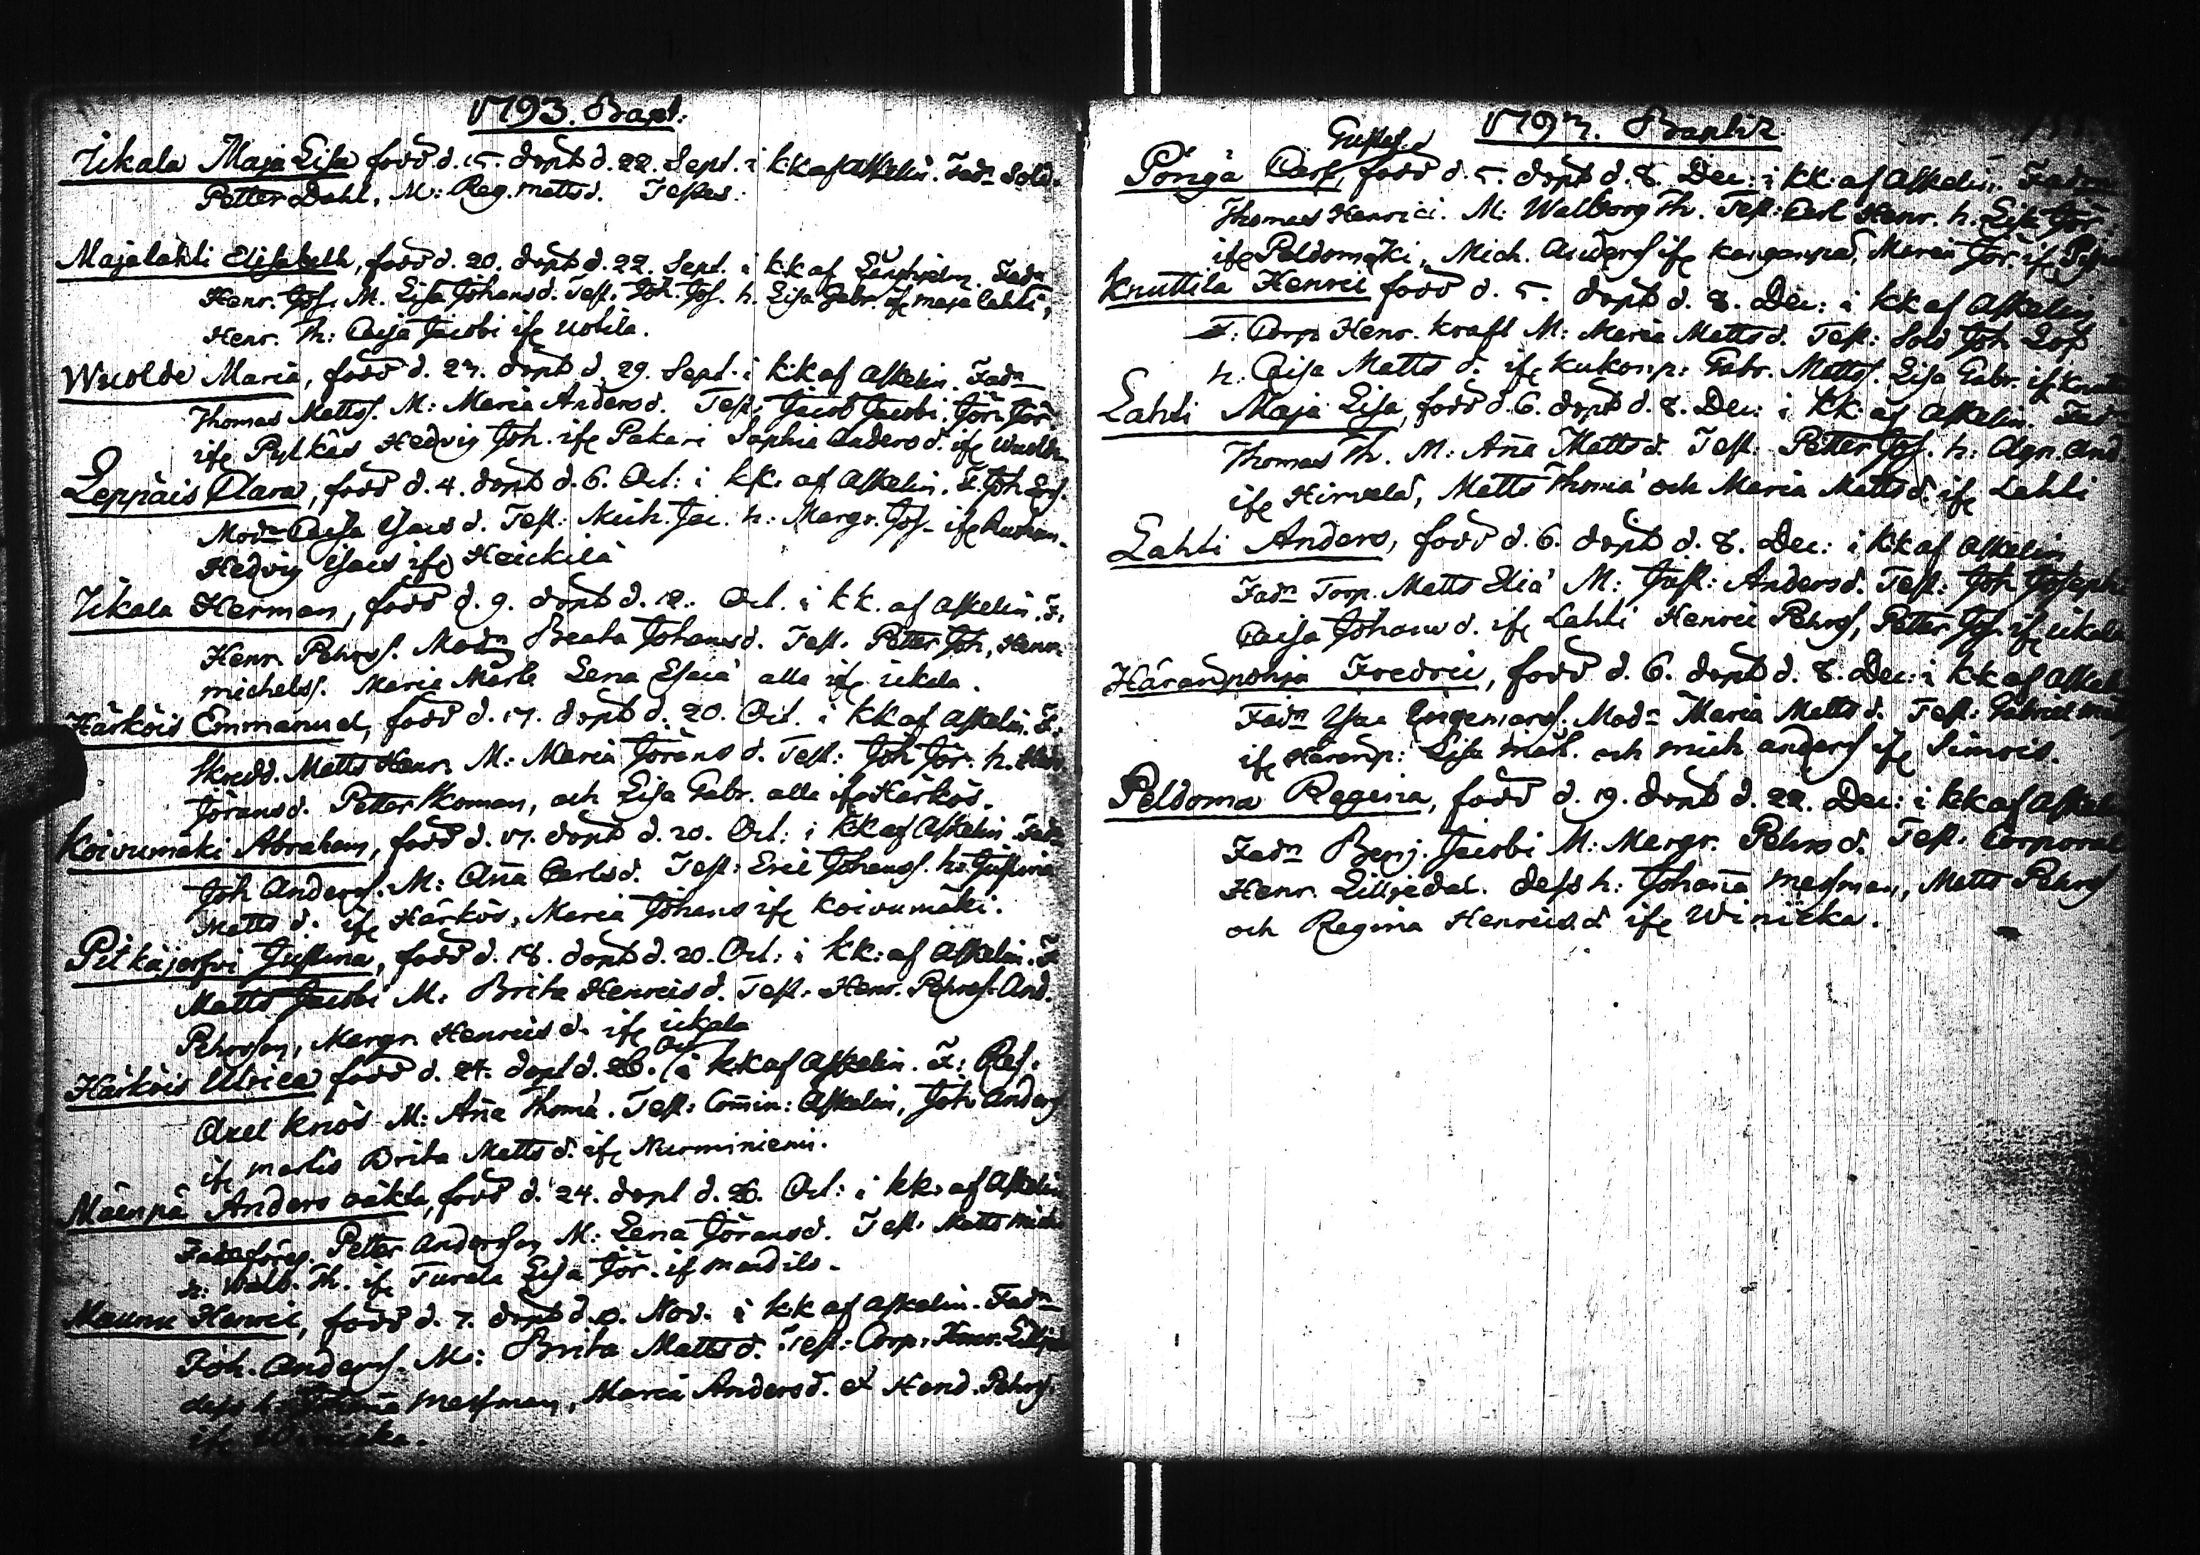 1793. Bapt:
Ükala Maja Lisa född d. 15. döpt d. 22. Sept. i kk af Askelin. Fadn Sold.
Petter Dahl, M: Reg. Mattsd. Testes:
Majalahti Elisabeth, född d. 20. döpt d. 22. Sept. i kk af Fadn
Henr. Jos. M. Lisa Johansd. Test. Joh. Jos. h. Lisa Gabr. ifr Majalahti,
Henr. Th: Caisa Jacobi ifr Uotila.
Wuolde Maria, född d. 27. döpt d. 29. Sept. i kk af Askelin. Fadn
Thomas Mattss. M: Maria Andersd. Test: Jacob Jacobi. Jör. Jör.
ifr Pytkäs Hedvig Joh. ifr Pakari Sophia Andersd. ifr
Leppäis Clara, född d. 4. döpt d. 6. Oct: i kk. af Askelin. F. Joh
Modn Caisa Isacsd. Test: Mich. Jac. h: Margr. Jos. ifr
Hedvig Isacs ifr Heickilä
Ükala Herman, född d. 9. döpt d. Oct. i kk. af Askelin. F.
Henr. Pehrss. Modn Beata Johansd. Test. Petter Joh, Henr.
Michelss. Maria Märt. Lena Esaiæ alla ifr Ükala.
Härköis Emmanuel, född d. 17. döpt d. 20. Oct. i kk af Askelin. F:
Skredd. Matts Henr. M: Maria Jöransd. Test: Joh Jör. h.
Jöransd. Petter Koman, och Lisa Gabr. alla ifr Härkös.
Koivumäki Abraham, född d. 17. döpt d. 20. Oct: i kk af Askelin Fadn
Joh Anderss. M: Anna Carlsd. Test: Eric Johanss. h: Justina
Mattsd. ifr Härkös, Maria Johans ifr Koivumäki.
Pitkäjerfvi Justina, född d. 18. döpt d. 20. Oct: i kk: af Askelin. F
Matts Jacobi M: Brita Henricsd. Test. Henr. Pehrss. And.
Pehrsson, Margr. Henricsd. ifr Ükala
Härköis Ulrica född d. 24. döpt d. 26. Oct i kk af Askelin. F: Ref.
Axel Knös M: Anna Thomæ. Test: Comin: Askelin, Joh Anders
ifr Martis Brita Mattsd. ifr Nurminiemi.
Mäenpä Anders oäkta, född d. 24. döpt d. 26. Oct: i kk. af Askelin
Petter Andersson M: Lena Jöransd. Test. Matts Mich
h: Walb. Th. ifr Turala Lisa Jör. ifr Mandils.
Maunu Henric, född d. 7. döpt d. 10. Nov. i kk af Askelin. Fadn
Joh. Anderss. M: Brita Mattsd. Test: Corp. Henr.
dess h. Johana Messman, Maria Andersd. et Hend. Pehrss.
ifr Winicka.
1793. Baptiz
Gustaf
Pöngä Carl, född d. 5. döpt d. 8. Dec: i kk: af Askelin. Fadn
Thomas Henrici. M: Walborg Th. Test: Carl Henr. h. Lisa Jör.
ifr Peldomäki, Mich. Anderss ifr Kangarpä, Maria Jör. ifr
Knuttila Henric född d. 5. döpt d. 8. Dec: i kk af Askelin
F: Corp Henr. Kraft M: Maria Mattsd. Test: Sold Joh
h: Caisa Mattsd. ifr Kukonp: Gabr. Mattss. Lisa Gabr. ifr
Lahti Maja Lisa, född d. 6. döpt d. 8. Dec: i kk: af Askelin. Fadn
Thomas Th. M: Anna Mattsd. Test: Petter Jos. h: Agn. And
ifr Hirvelä, Matts Thomæ och Maria Mattsd. ifr Lahti
Lahti Anders, född d. 6. döpt d. 8. Dec: i kk af Askelin
Fadn Torp. Matts Eliæ M: Just: Andersd. Test: Joh Josephi
Caisa Johansd. ifr Lahti Henric Pehrss, Petter Jos ifr Ükala
Häränpohja Fredric, född d. 6. döpt d. 8. Dec: i kk af Askelin
Fadn Isac Ingemarss. Modn Maria Mattsd. Test: Gabriel
ifr Häränp: Lisa Märt. och Mich Anders ifr Simois.
Peldoma Regina, född d. 19. döpt d. 22. Dec: i kk af Askelin
Fadn Benj. Jacobi M: Margr. Pehrsd. Test. Corporal
Henr. Lilljedal. dess h: Johana Messman, Matts Pehrss
och Regina Henricsd ifr Winicka.